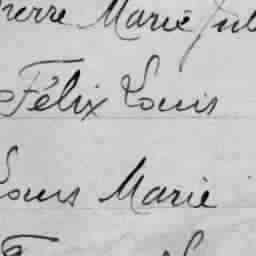 Pierre Marie Jul
Félix Louis
Louis Marie